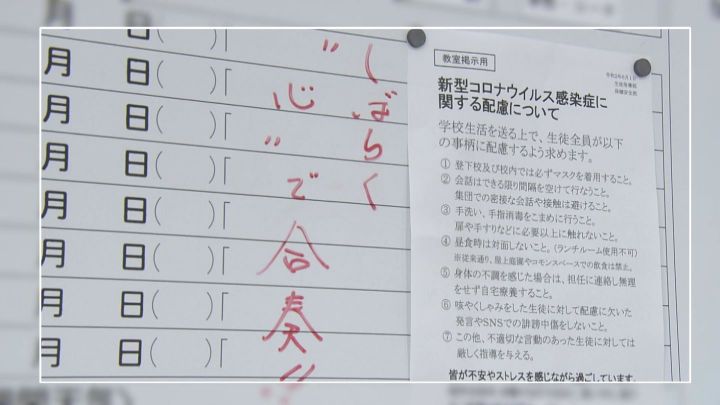 月 日( )「
月 日( )「
月 日( )「
月 日( )「
月 日( )「
月 日( )「
月 日( )「
しばらく
"心"で合奏!!
教室掲示用
令和2年6月1日
生徒指導部
保健安全部
新型コロナウイルス感染症に
関する配慮について
学校生活を送る上で、生徒全員が以下
の事柄に配慮するよう求めます。
① 登下校及び校内では必ずマスクを着用すること。
② 会話はできる限り間隔を空けて行なうこと。
集団での密接な会話や接触は避けること。
③ 手洗い、手指消毒をこまめに行うこと。
扉や手すりなどに必要以上に触れないこと。
④ 昼食時は対面しないこと。(ランチルーム使用不可)
※従来通り、屋上庭園やコモンスペースでの飲食は禁止。
⑤ 身体の不調を感じた場合は、担任に連絡し無理
をせず自宅療養すること。
⑥ 咳やくしゃみをした生徒に対して配慮に欠いた
発言やSNSでの誹謗中傷をしないこと。
⑦ この他、不適切な言動のあった生徒に対しては
厳しく指導を与える。
皆が不安やストレスを感じながら過ごしています。